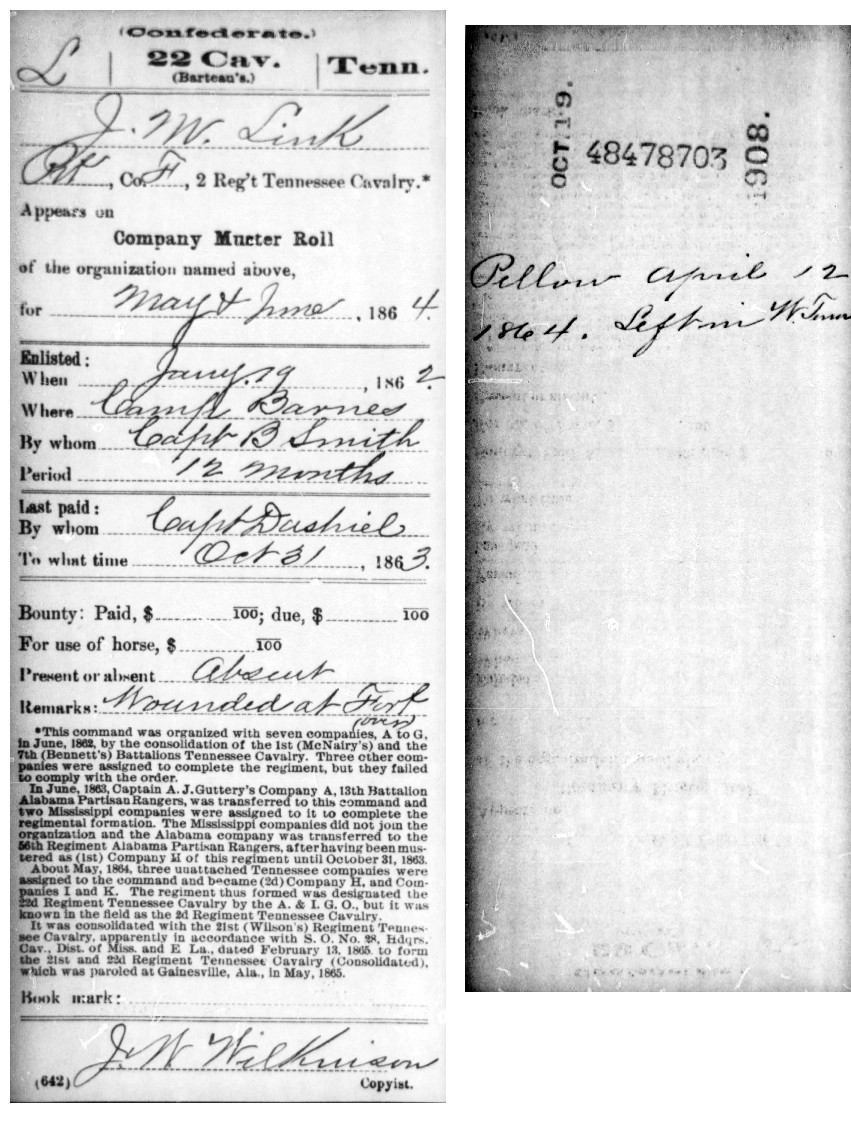 (Confederate.)
L | 22 Cav. | Tenn.
(Barteau's.)
J. W. Link
Pvt, Co. F, 2 Reg't Tennessee Cavalry.*
Appears on
Company Muster Roll
of the organization named above,
for May & June, 186 4.
Enlisted:
When Jany. 19, 186 2.
Where Camp Barnes
By whom Capt B Smith
Period 12 months
Last paid:
By whom Capt Dashiel
To what time Oct 31, 186 3.
Bounty: Paid, $ 100; due, $ 100
For use of horse, $ 100
Present or absent Absent
Remarks: Wounded at Fort
(over)
*This command was organized with seven companies, A to G,
in June, 1862, by the consolidation of the 1st (McNairy's) and the
7th (Bennett's) Battalions Tennessee Cavalry. Three other com-
panies were assigned to complete the regiment, but they failed
to comply with the order.
In June, 1863, Captain A. J. Guttery's Company A, 13th Battalion
Alabama Partisan Rangers, was transferred to this command and
two Mississippi companies were assigned to it to complete the
regimental formation. The Mississippi companies did not join the
organization and the Alabama company was transferred to the
56th Regiment Alabama Partisan Rangers, after having been mus-
tered as (1st) Company H of this regiment until October 31, 1863.
About May, 1864, three unattached Tennessee companies were
assigned to the command and became (2d) Company H, and Com-
panies I and K. The regiment thus formed was designated the
22d Regiment Tennessee Cavalry by the A. & I. G. O., but it was
known in the field as the 2d Regiment Tennessee Cavalry.
It was consolidated with the 21st (Wilson's) Regiment Tennes-
see Cavalry, apparently in accordance with S. O. No. 28, Hdqrs.
Cav., Dist. of Miss. and E. La., dated February 13, 1865, to form
the 21st and 22d Regiment Tennessee Cavalry (Consolidated),
which was paroled at Gainesville, Ala., in May, 1865.
Book mark:
J. W Wilkinson
(642) Copyist.
OCT 19. 48478703 1908.
Pillow April 12
1864. Left in W. Tenn